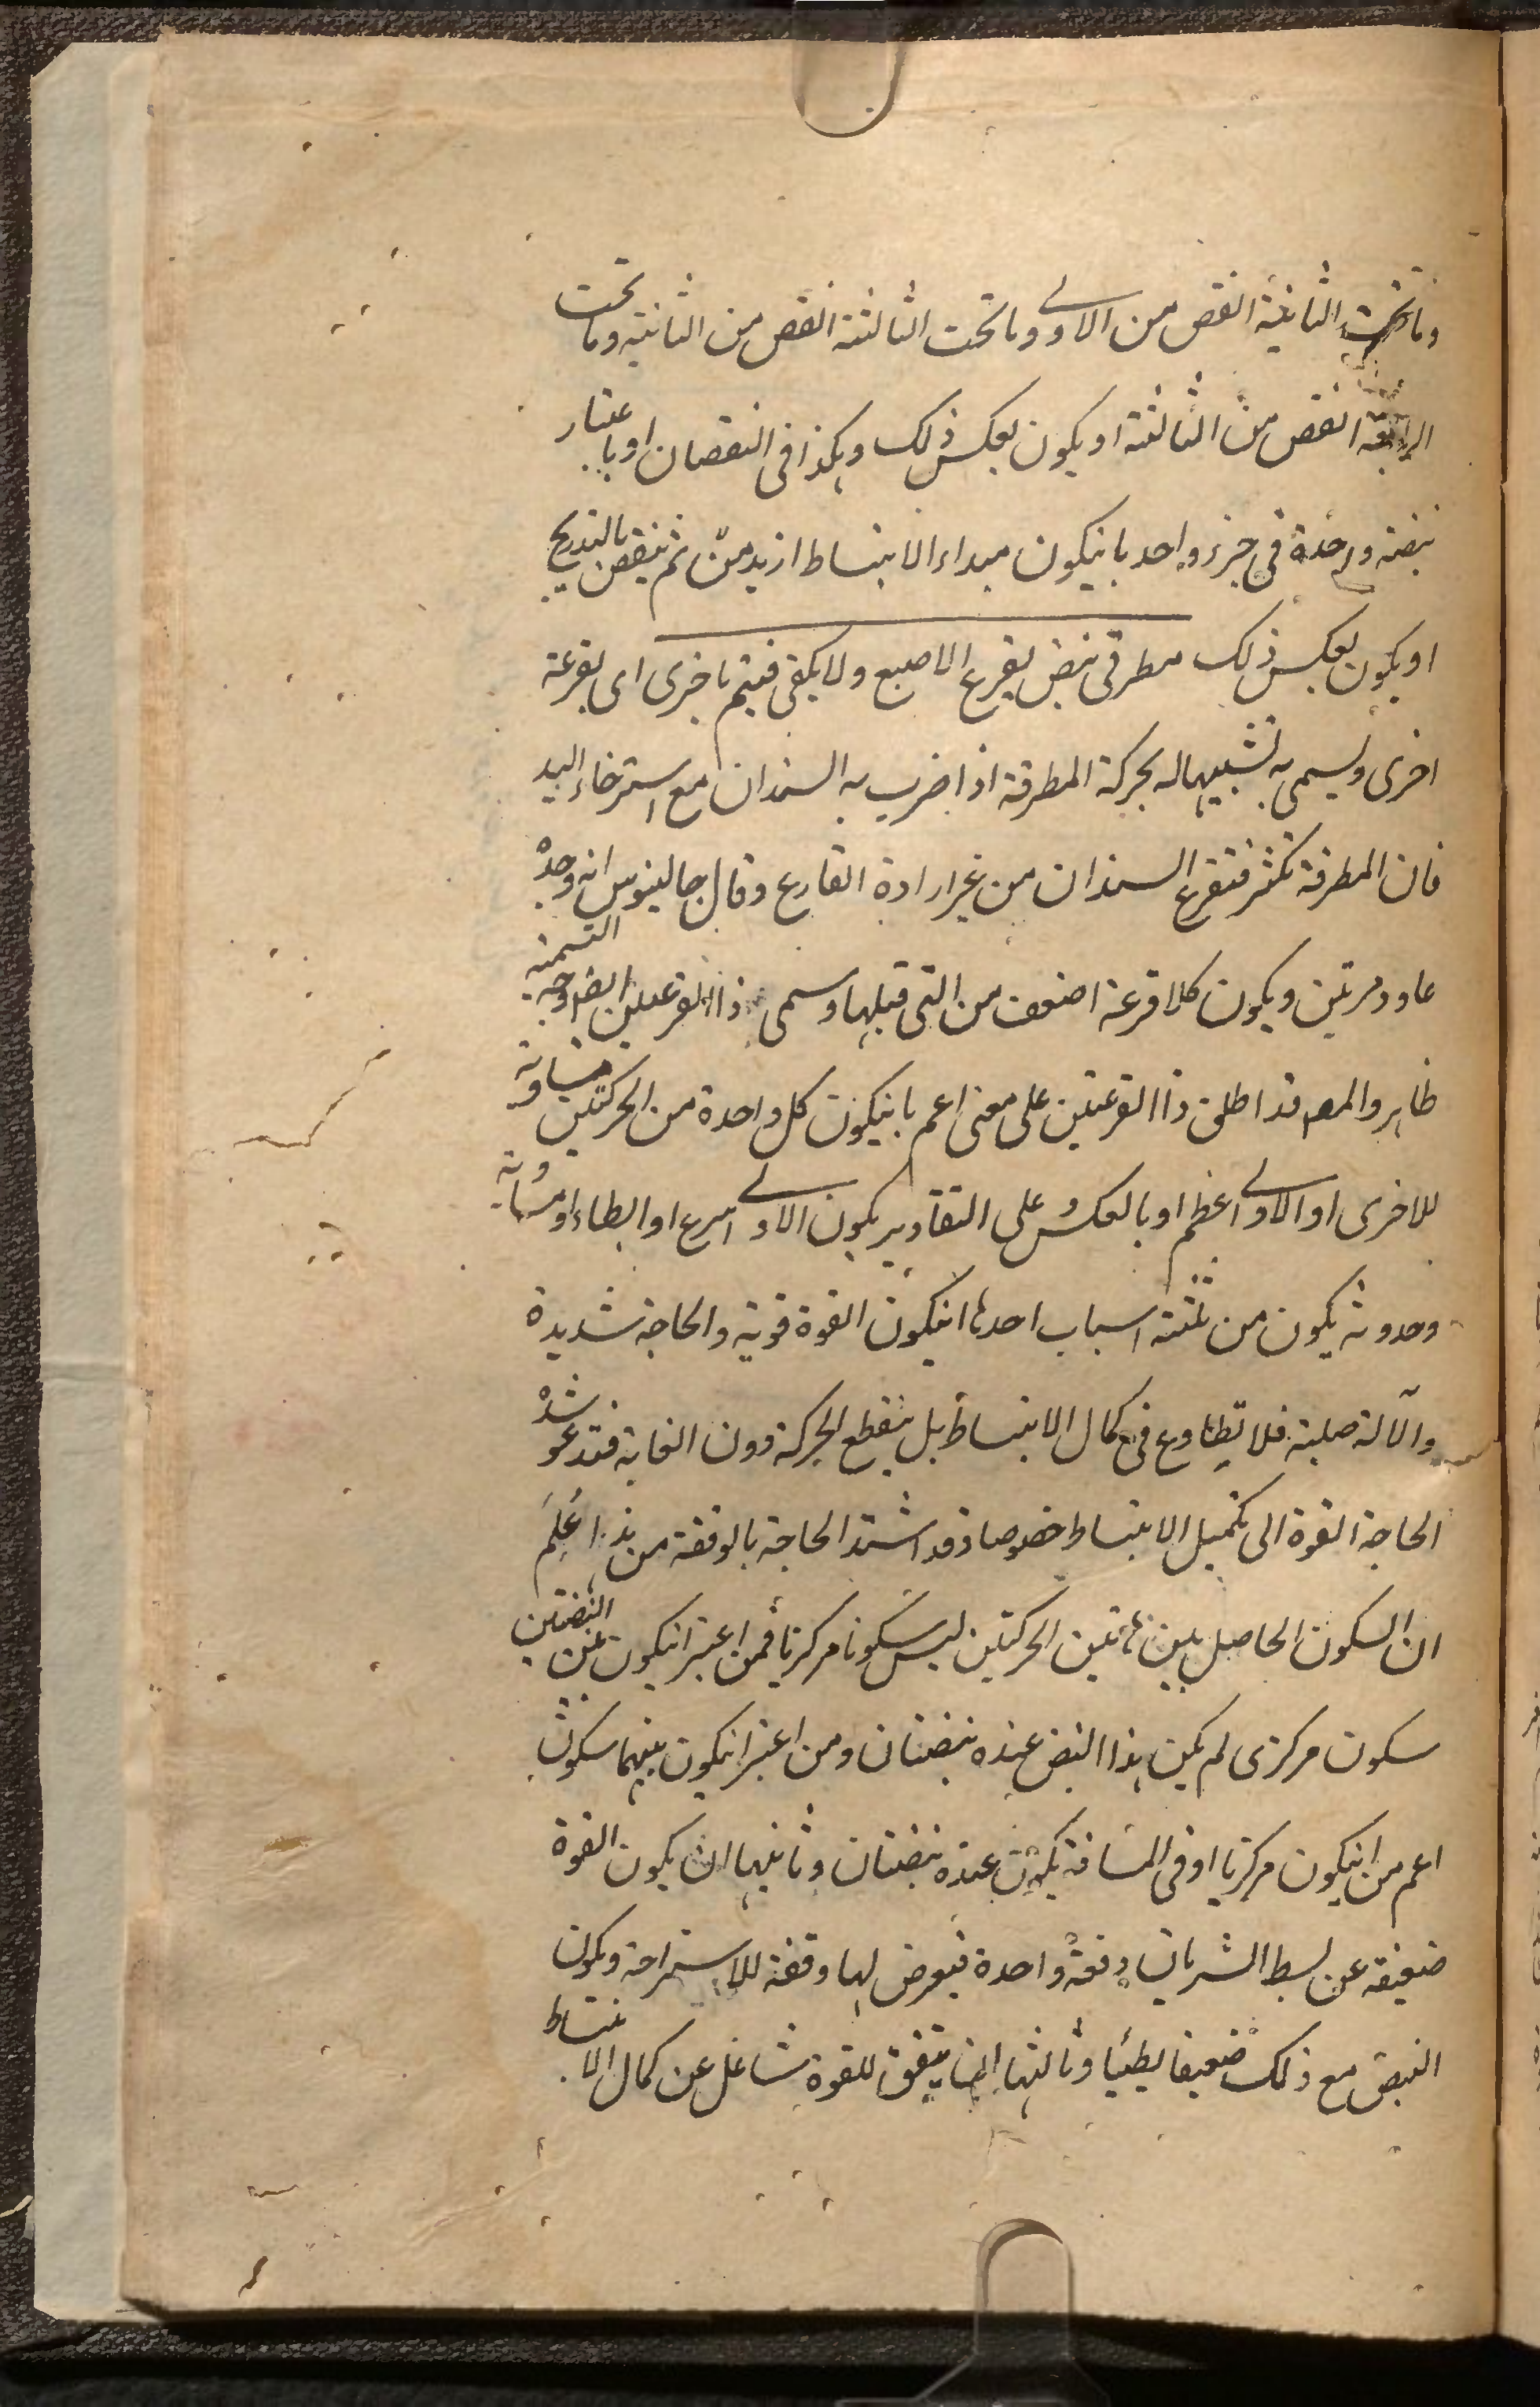 وما تحت الثانية انقص من الاولى وما تحت الثالثة انقص من الثانية وما تحت
الرابعة انقص من الثالثة او يكون بعكس ذلك وهكذا فى النقصان او باعتبار
نبضة واحدة فى جزء واحد بانيكون مبداء الانبساط ازيد ثم ينقص بالتدريج
او يكون بعكس ذلك مطرقى نبض يقرع الاصبع ولا يكفى فيتم باخرى اى بقرعة
اخرى ويسمى به تشبيها له بحركة المطرقة اذا ضرب به السندان مع استرخاء اليد
فان المطرقة تكثر فتقرع السندان من غير ارادة القارع وقال جالينوس انه وجد
عاود مرتين ويكون كلا قرعة اضعف من التى قبلها وسمى ذا القرعتين ايضا ووجه التسمية
ظاهر والمصه قد اطلق ذا القرعتين على معنى اعم بانيكون كل واحدة من الحركتين مساوية
للاخرى او الاولى اعظم او بالعكس وعلى التقادير يكون الاولى اسرع او ابطاء او مساوية
وحدوثه يكون من ثلثة اسباب احدها انيكون القوة قوية والحاجة شديدة
والآلة صلبة فلا تطاوع فى كمال الانبساط بل ينقطع الحركة دون الغاية فتدعو شدة
الحاجة القوة الى تكميل الانبساط خصوصا وقد اشتد الحاجة بالوقفة من هذا عُلِمَ
ان السكون الحاصل بين هاتين الحركتين ليس سكونا مركزيا فمن اعتبر انيكون بين النبضتين
سكون مركزى لم يكن هذا النبض عنده نبضتان ومن اعتبر انيكون بينهما سكون
اعم من انيكون مركزيا او فى المسافة يكون عنده نبضتان وثانيها ان يكون القوة
ضعيفة عن بسط الشريان دفعة واحدة فيعرض لها وقفة للاستراحة ويكون
النبض مع ذلك ضعيفا بطيئا وثالثها ان يتفق للقوة شاغل عن كمال الانبساط